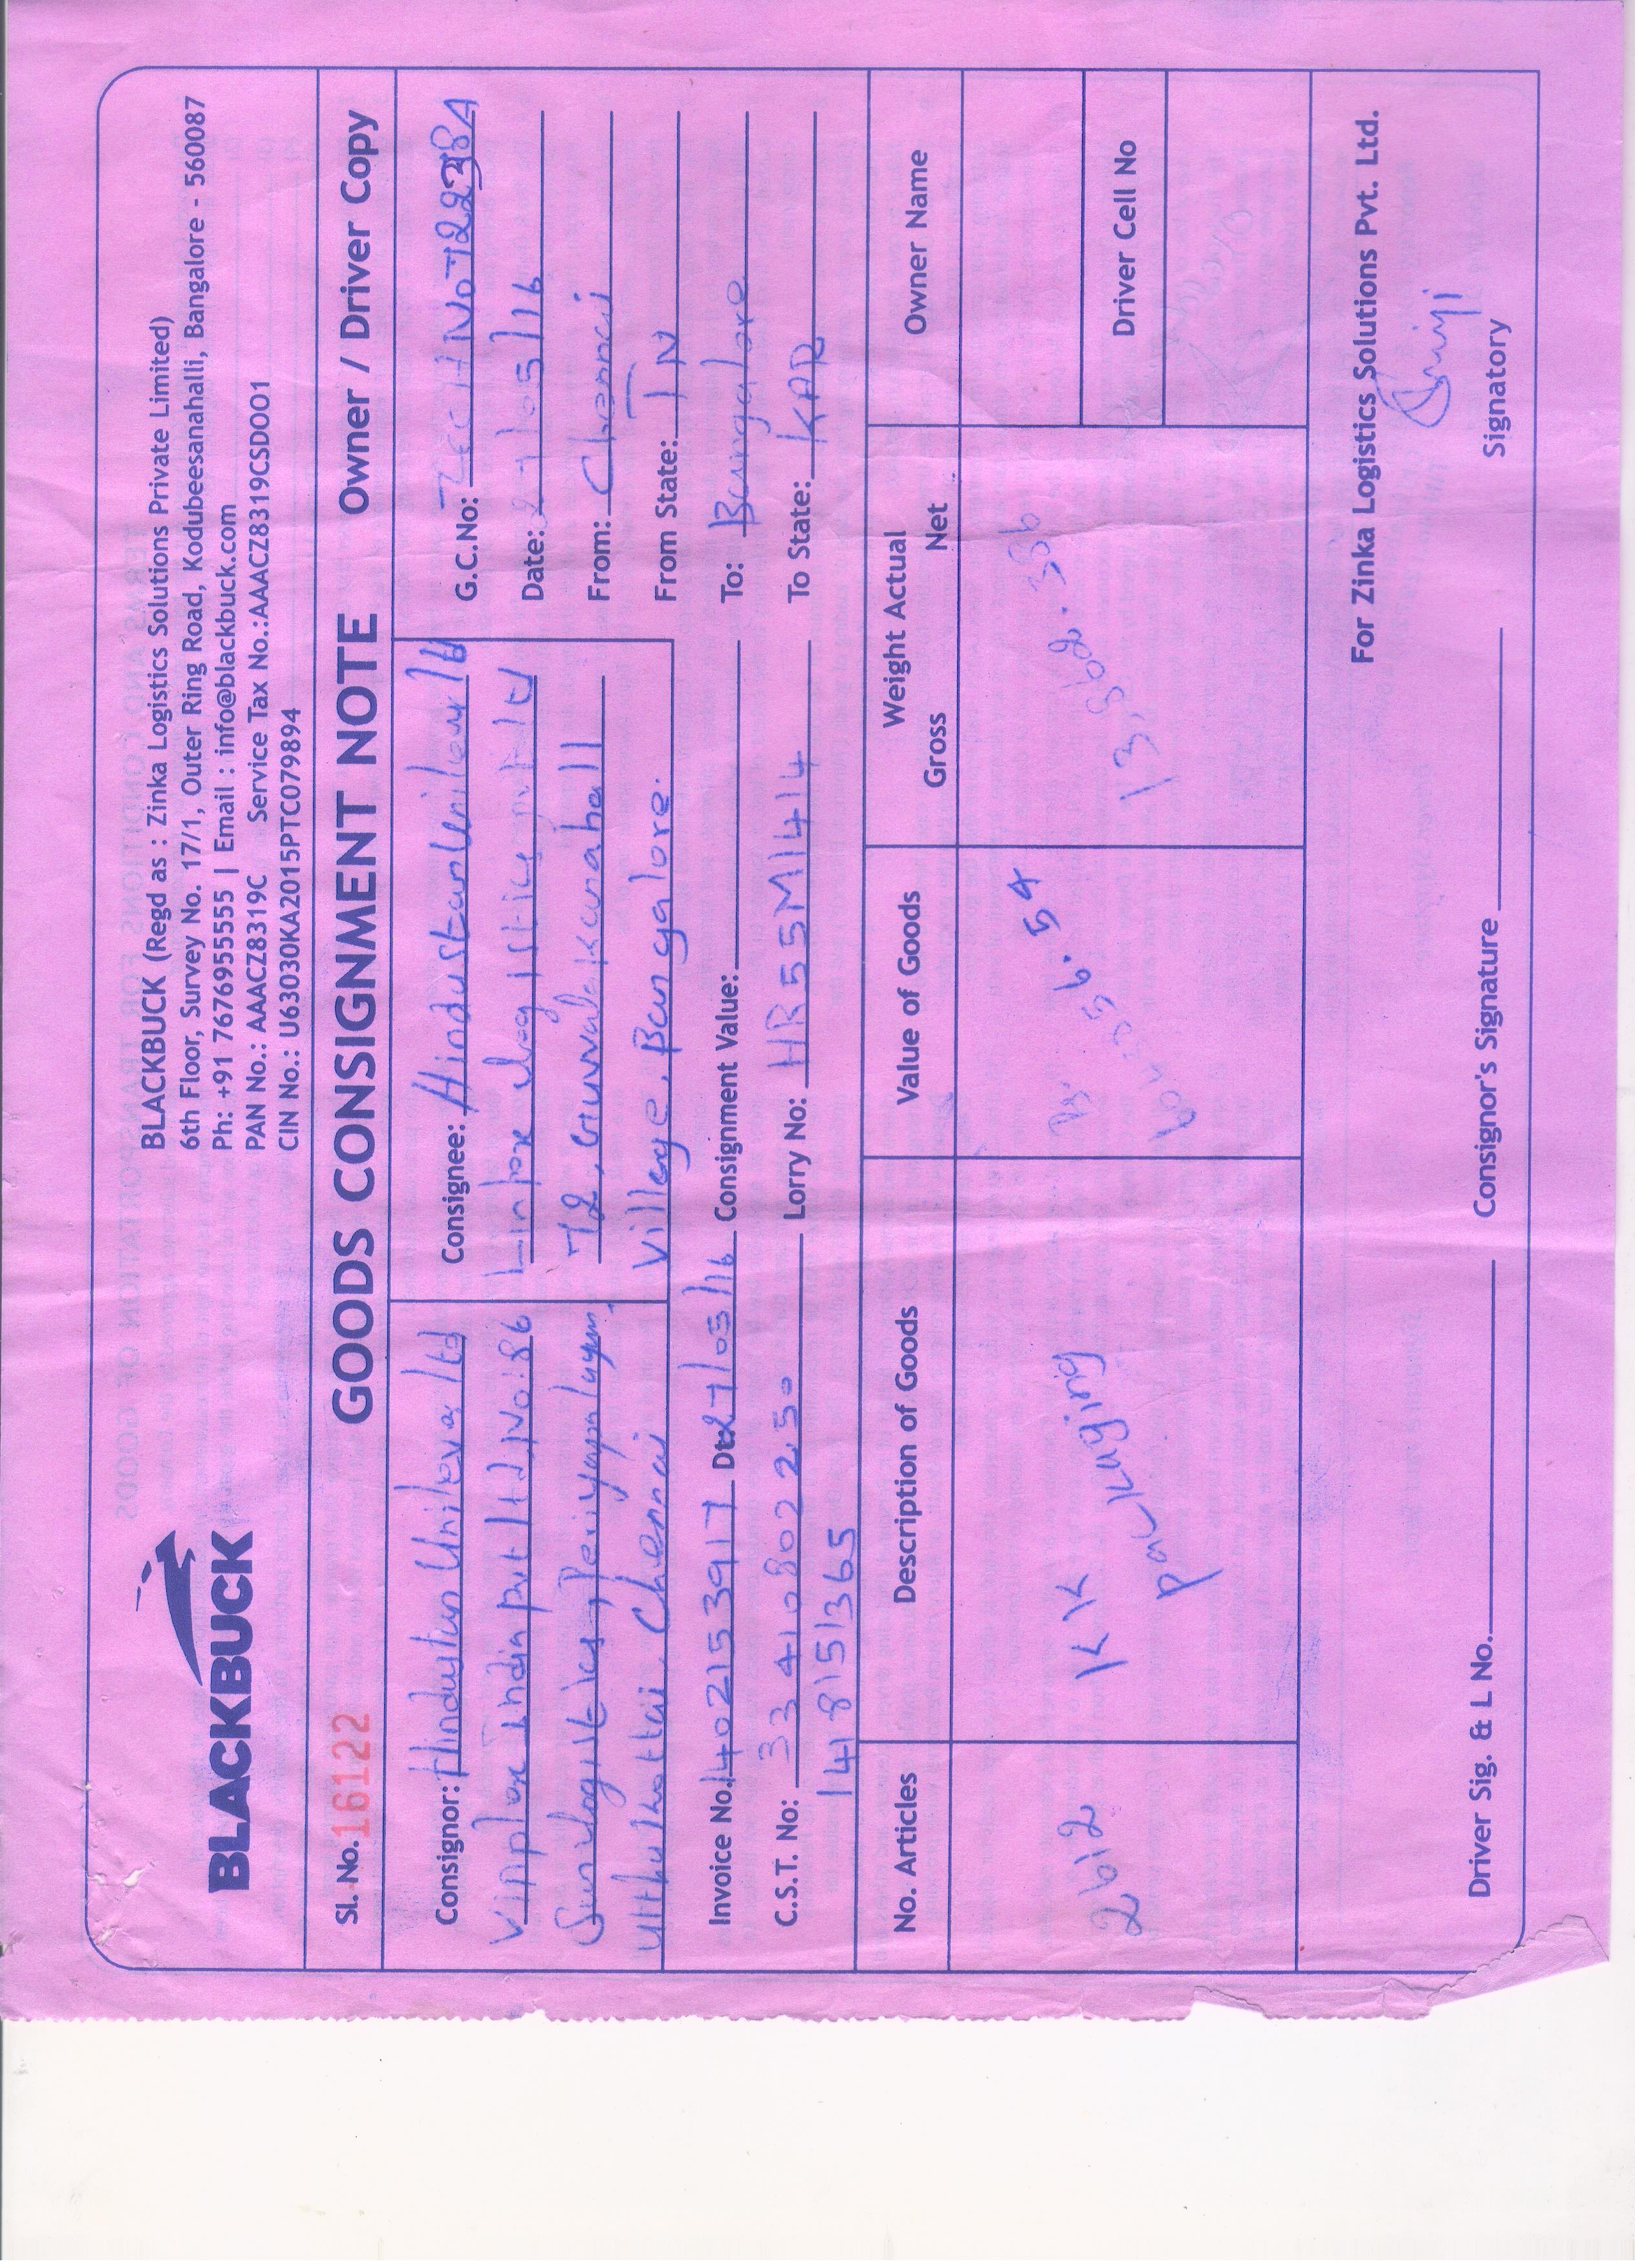 BLACKBUCK
BLACKBUCK (Regd as : Zinka Logistics Solutions Private Limited)
6th Floor, Survey No. 17/1, Outer Ring Road, Kodubeesanahalli, Bangalore - 560087
Ph: +91 7676955555 | Email : info@blackbuck.com
PAN No.: AAACZ8319C Service Tax No.:AAACZ8319CSDOO1
CIN No.: U63030KA2015PTC079894
Sl. No. 16122 GOODS CONSIGNMENT NOTE Owner / Driver Copy
Consignor: Hindustan Unilever ltd
Vinplex India pvt ltd, No: 86
Sun logistics, Periyapalayam,
Uthukottai, Chennai
Consignee: Hindustan Unilever ltd
Linfox logistics pvt ltd
72, Guwalakanahall
Village, Bangalore.
G.C.No:
Date: 27/05/16
From: Chennai
From State: TN
To: Bangalore
To State: KAR
Invoice No. 1402153917 Dt: 27/05/16 Consignment Value:
C.S.T. No: 33410802250 Lorry No: HR55M1414
1418151365
No. Articles Description of Goods Value of Goods Weight Actual Gross Net Owner Name
2612 KK packaging Rs. 13,862.386
Driver Cell No
For Zinka Logistics Solutions Pvt. Ltd.
Driver Sig. & L No. Consignor's Signature Signatory